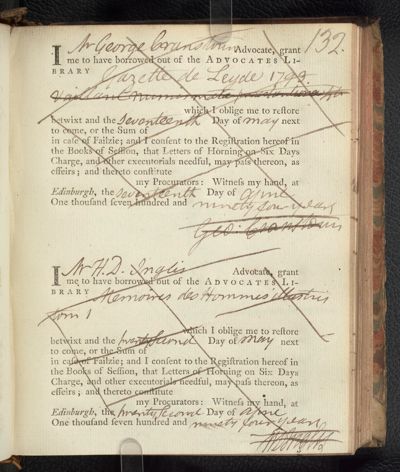 132.
I Mr George Cranstoun Advocate, grant
me to have borrowed out of the ADVOCATES LI-
BRARY Gazette de Leyde 1799
Vaillant
which I oblige me to restore
betwixt and the Seventeenth Day of May next
to come, or the Sum of
in case of Failzie; and I consent to the Registration hereof in
the Books of Session, that Letters of Horning on Six Days
Charge, and other executorials needful, may pass thereon, as
effeirs; and thereto constitute
my Procurators: Witness my hand, at
Edinburgh, the Seventeenth Day of April
One thousand seven hundred and ninety four years
Geo: Cranstoun
I Mr H.D. Inglis Advocate, grant
me to have borrowed out of the ADVOCATES LI-
BRARY Memoires des Hommes illustres
Tom 1
which I oblige me to restore
betwixt and the twentysecond Day of May next
to come, or the Sum of
in case of Failzie; and I consent to the Registration hereof in
the Books of Session, that Letters of Horning on Six Days
Charge, and other executorials needful, may pass thereon, as
effeirs; and thereto constitute
my Procurators: Witness my hand, at
Edinburgh, the twentysecond Day of April
One thousand seven hundred and ninety four years